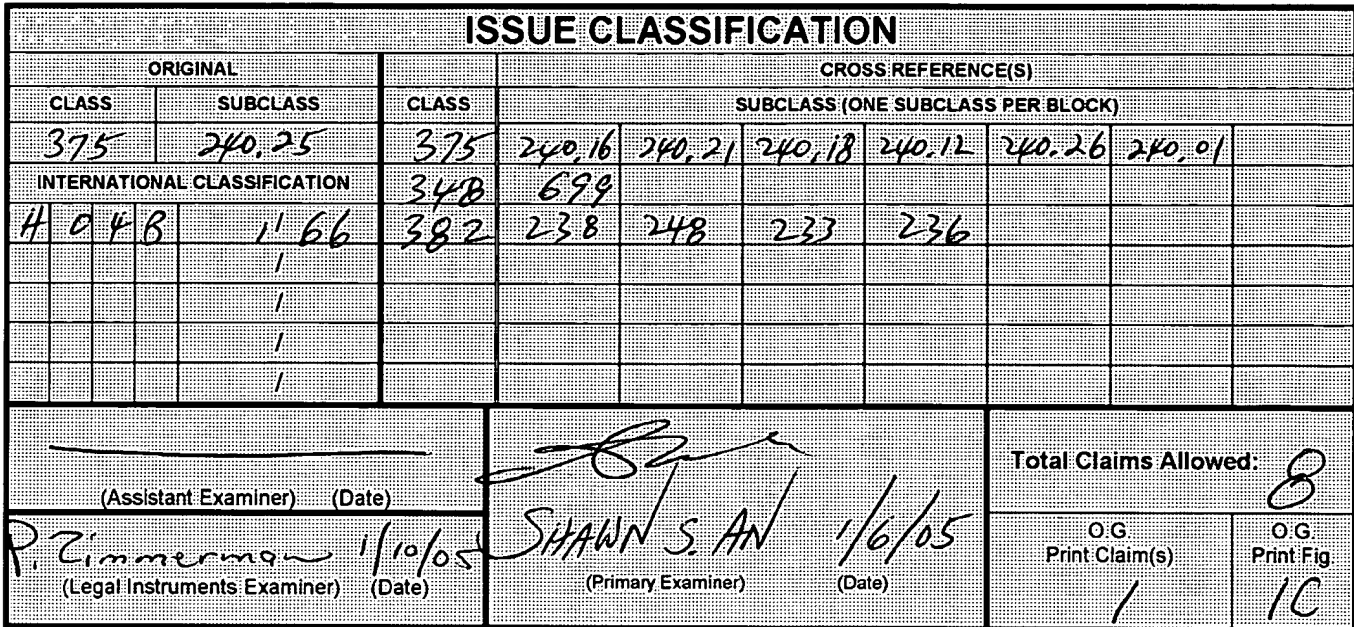 ISSUE CLASSIFICATION
ORIGINAL CROSS REFERENCE(S)
CLASS SUBCLASS CLASS SUBCLASS (ONE SUBCLASS PER BLOCK)
375 240.25 375 240.16 240.21 240.18 240.12 240.26 240.01
INTERNATIONAL CLASSIFICATION 348 699
H 0 4 B 1/66 382 238 248 233 236
/
/
/
/
(Assistant Examiner) (Date)
R. Zimmerman 1/10/05
(Legal Instruments Examiner) (Date)
SHAWN S. AN 1/6/05
(Primary Examiner) (Date)
Total Claims Allowed: 8
O.G. Print Claim(s)
1
O.G. Print Fig.
1C